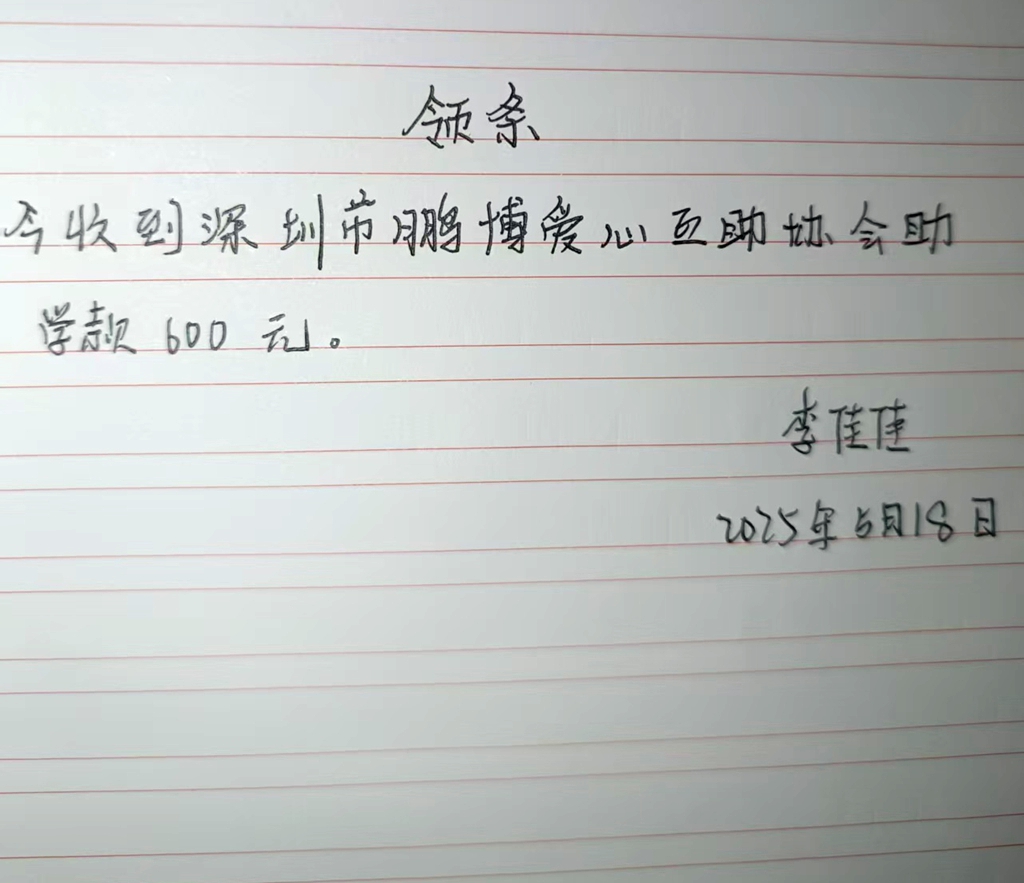 领条
今收到深圳市鹏博爱心互助协会助
学款600元。
李佳佳
2025年5月18日